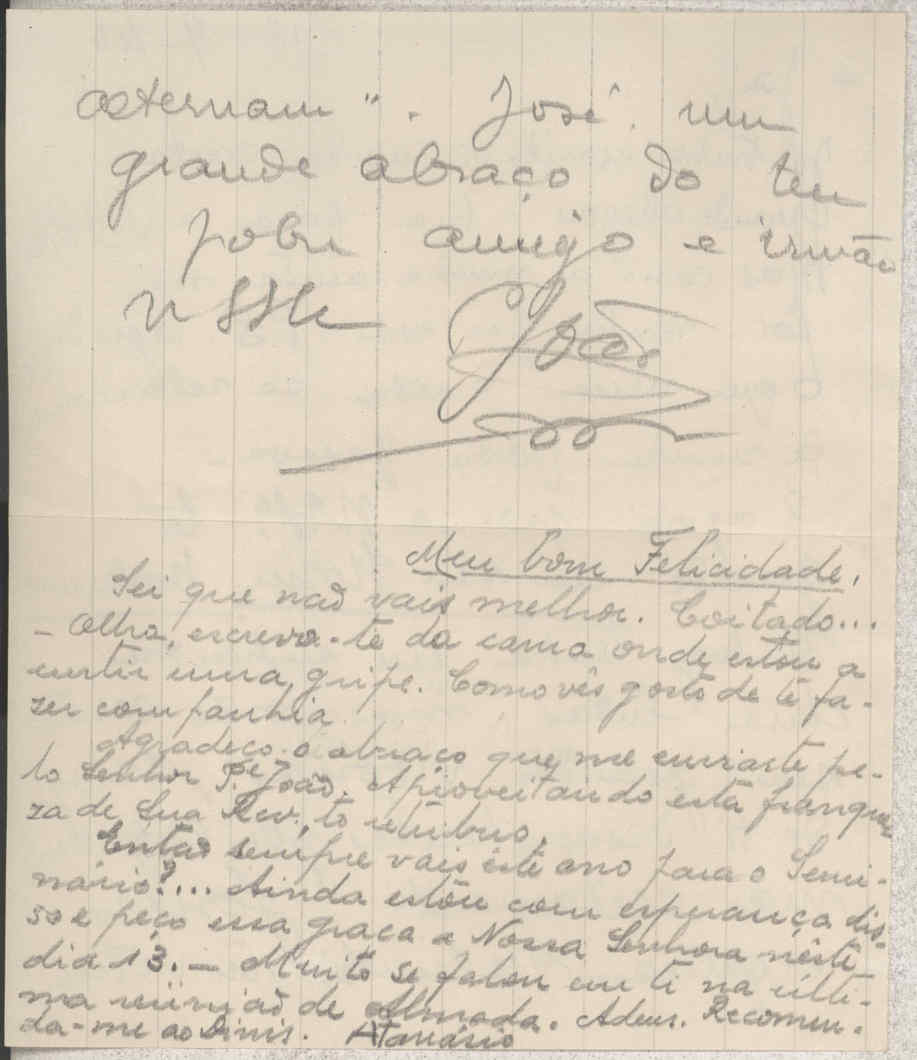 aeternam". José um
grande abraço do teu
pobre amigo e irmão
João
Meu bom Felicidade,
Sei que não vais melhor. Coitado...
- Olha, escrevo-te da cama onde estou a
curtir uma gripe. Como vês gosto de te fa-
zer companhia.
Agradeço o abraço que me enviaste pe-
lo Senhor P.e João. Aproveitando esta franque
za de Sua Rev. to retribuo.
Então sempre vais êste ano para o Semi-
nário?... Ainda estou com esperança dis-
so e peço essa graça a Nossa Senhora nêste
dia 13. - Muito se falou em ti na últi-
ma reünião de Almada. Adeus. Recomen-
da-me ao Dinis. Atanásio